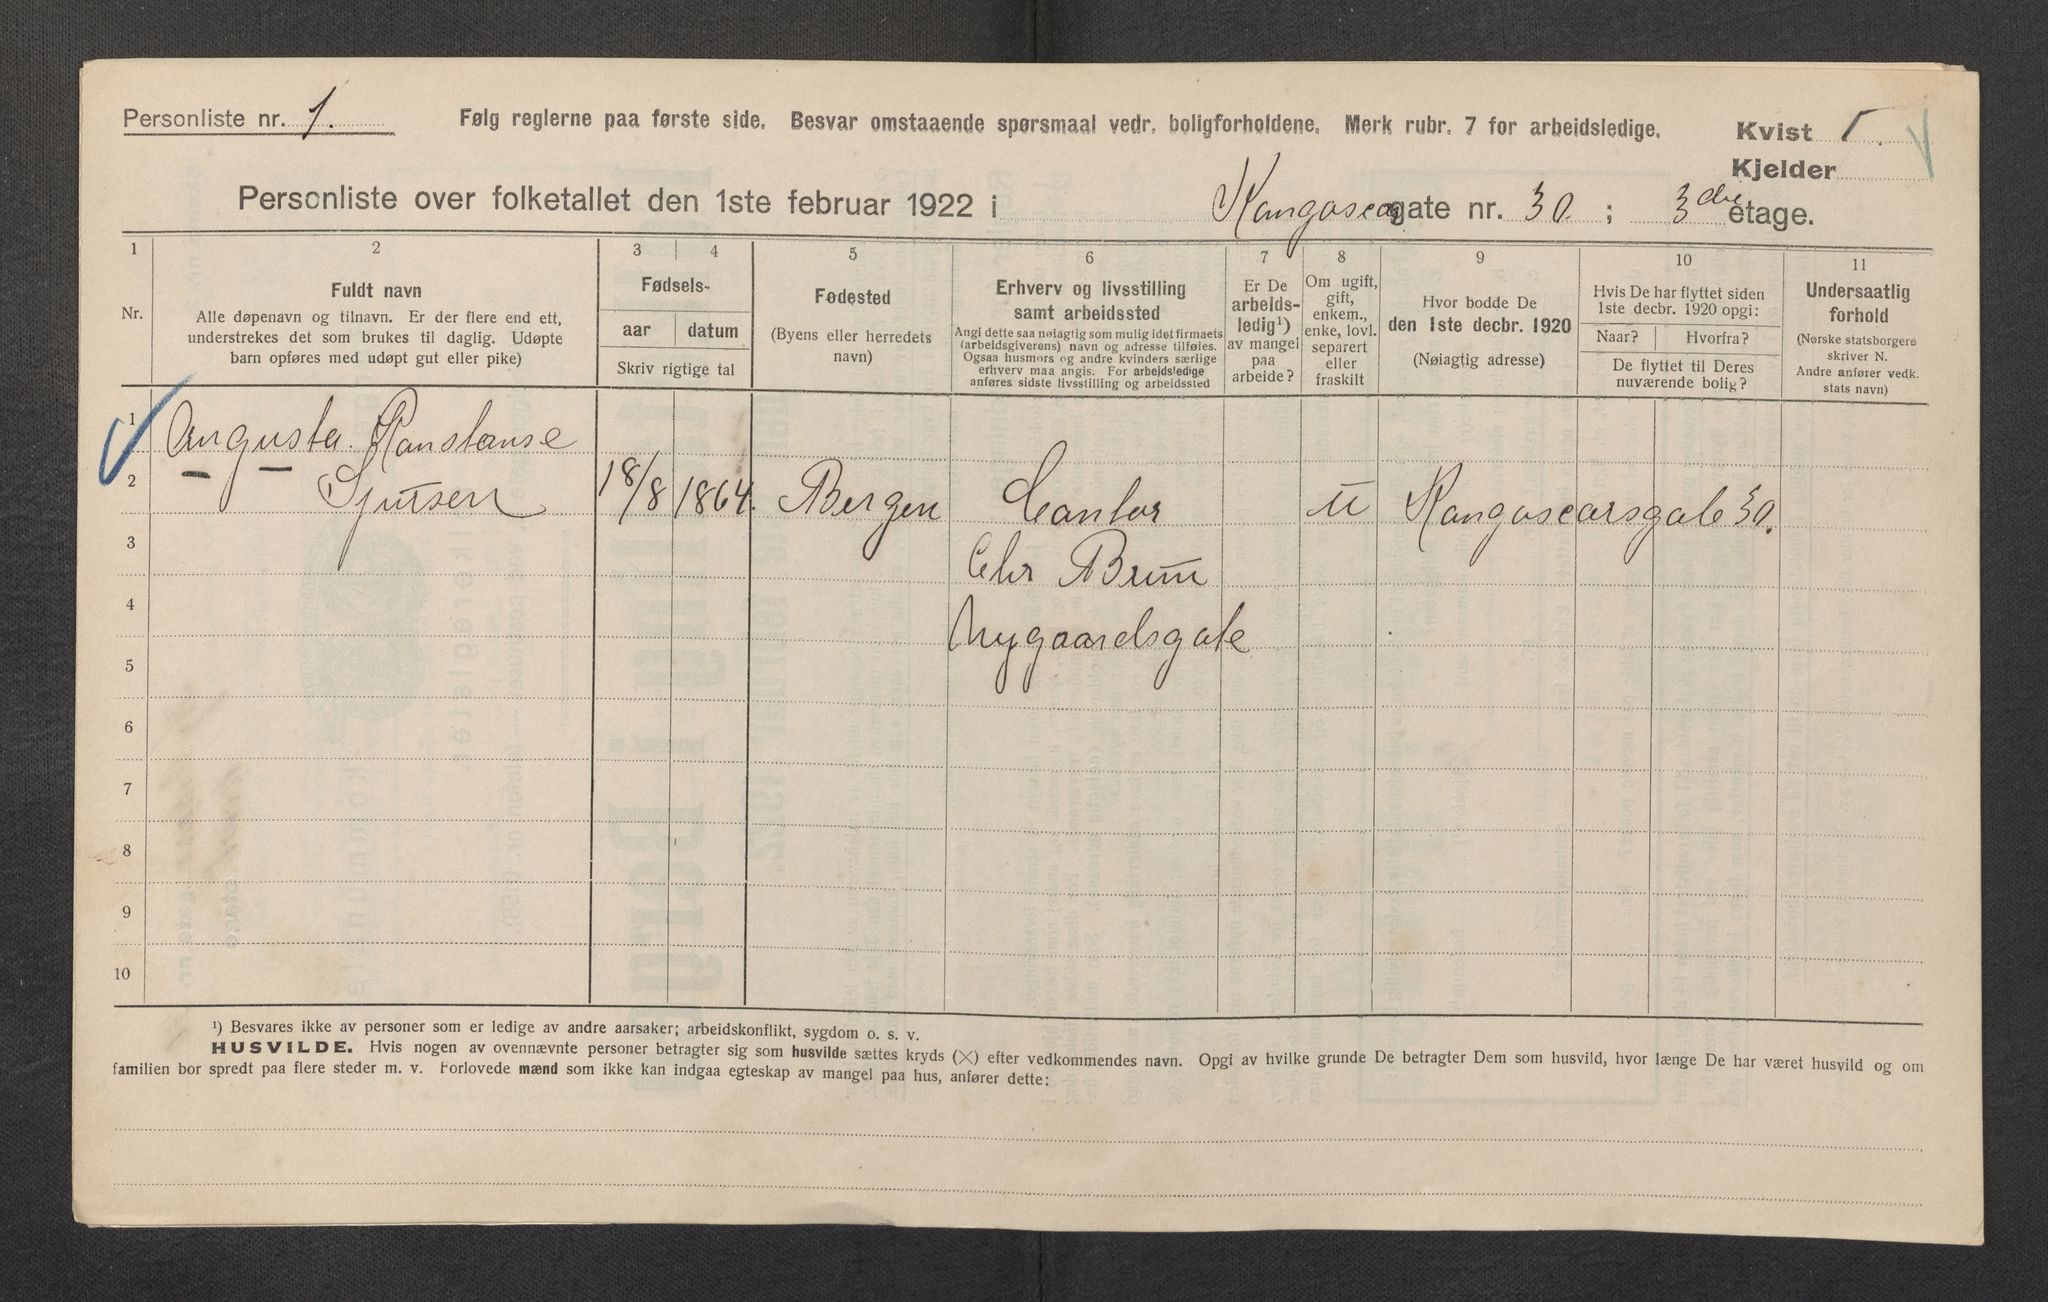 Personliste nr. 1.
Følg reglerne paa første side. Besvar omstaaende spørsmaal vedr. boligforholdene. Merk rubr. 7 for arbeidsledige.
Kvist 1
Kjelder
Personliste over folketallet den 1ste februar 1922 i Kongoscar gate nr. 30. ; 3die etage.
1 2 3 4 5 6 7 8 9 10 11
Nr.
Fuldt navn
Alle døpenavn og tilnavn. Er der flere end ett,
understrekes det som brukes til daglig. Udøpte
barn opføres med udøpt gut eller pike)
Fødsels-
aar datum
Skriv rigtige tal
Fødested
(Byens eller herredets
navn)
Erhverv og livsstilling
samt arbeidssted
Angi dette saa nøiagtig som mulig idet firmaets
(arbeidsgiverens) navn og adresse tilføies.
Ogsaa husmors og andre kvinders særlige
erhverv maa angis. For arbeidsledige
anføres sidste livsstilling og arbeidssted
Er De
arbeids-
ledig¹)
av mangel
paa
arbeide?
Om ugift,
gift,
enkem.,
enke, lovl.
separert
eller
fraskilt
Hvor bodde De
den 1ste decbr. 1920
(Nøiagtig adresse)
Hvis De har flyttet siden
1ste decbr. 1920 opgi:
Naar? Hvorfra?
De flyttet til Deres
nuværende bolig?
Undersaatlig
forhold
(Norske statsborgere
skriver N.
Andre anfører vedk.
stats navn)
1 Augusta Konstanse
2 Sjursen 18/8 1864. Bergen Contor u Kongoscarsgate 30.
3 Chr Bruun
4 Nygaardsgate
5
6
7
8
9
10
¹) Besvares ikke av personer som er ledige av andre aarsaker; arbeidskonflikt, sygdom o. s. v.
HUSVILDE. Hvis nogen av ovennævnte personer betragter sig som husvilde sættes kryds (×) efter vedkommendes navn. Opgi av hvilke grunde De betragter Dem som husvild, hvor længe De har været husvild og om
familien bor spredt paa flere steder m. v. Forlovede mænd som ikke kan indgaa egteskap av mangel paa hus, anfører dette: